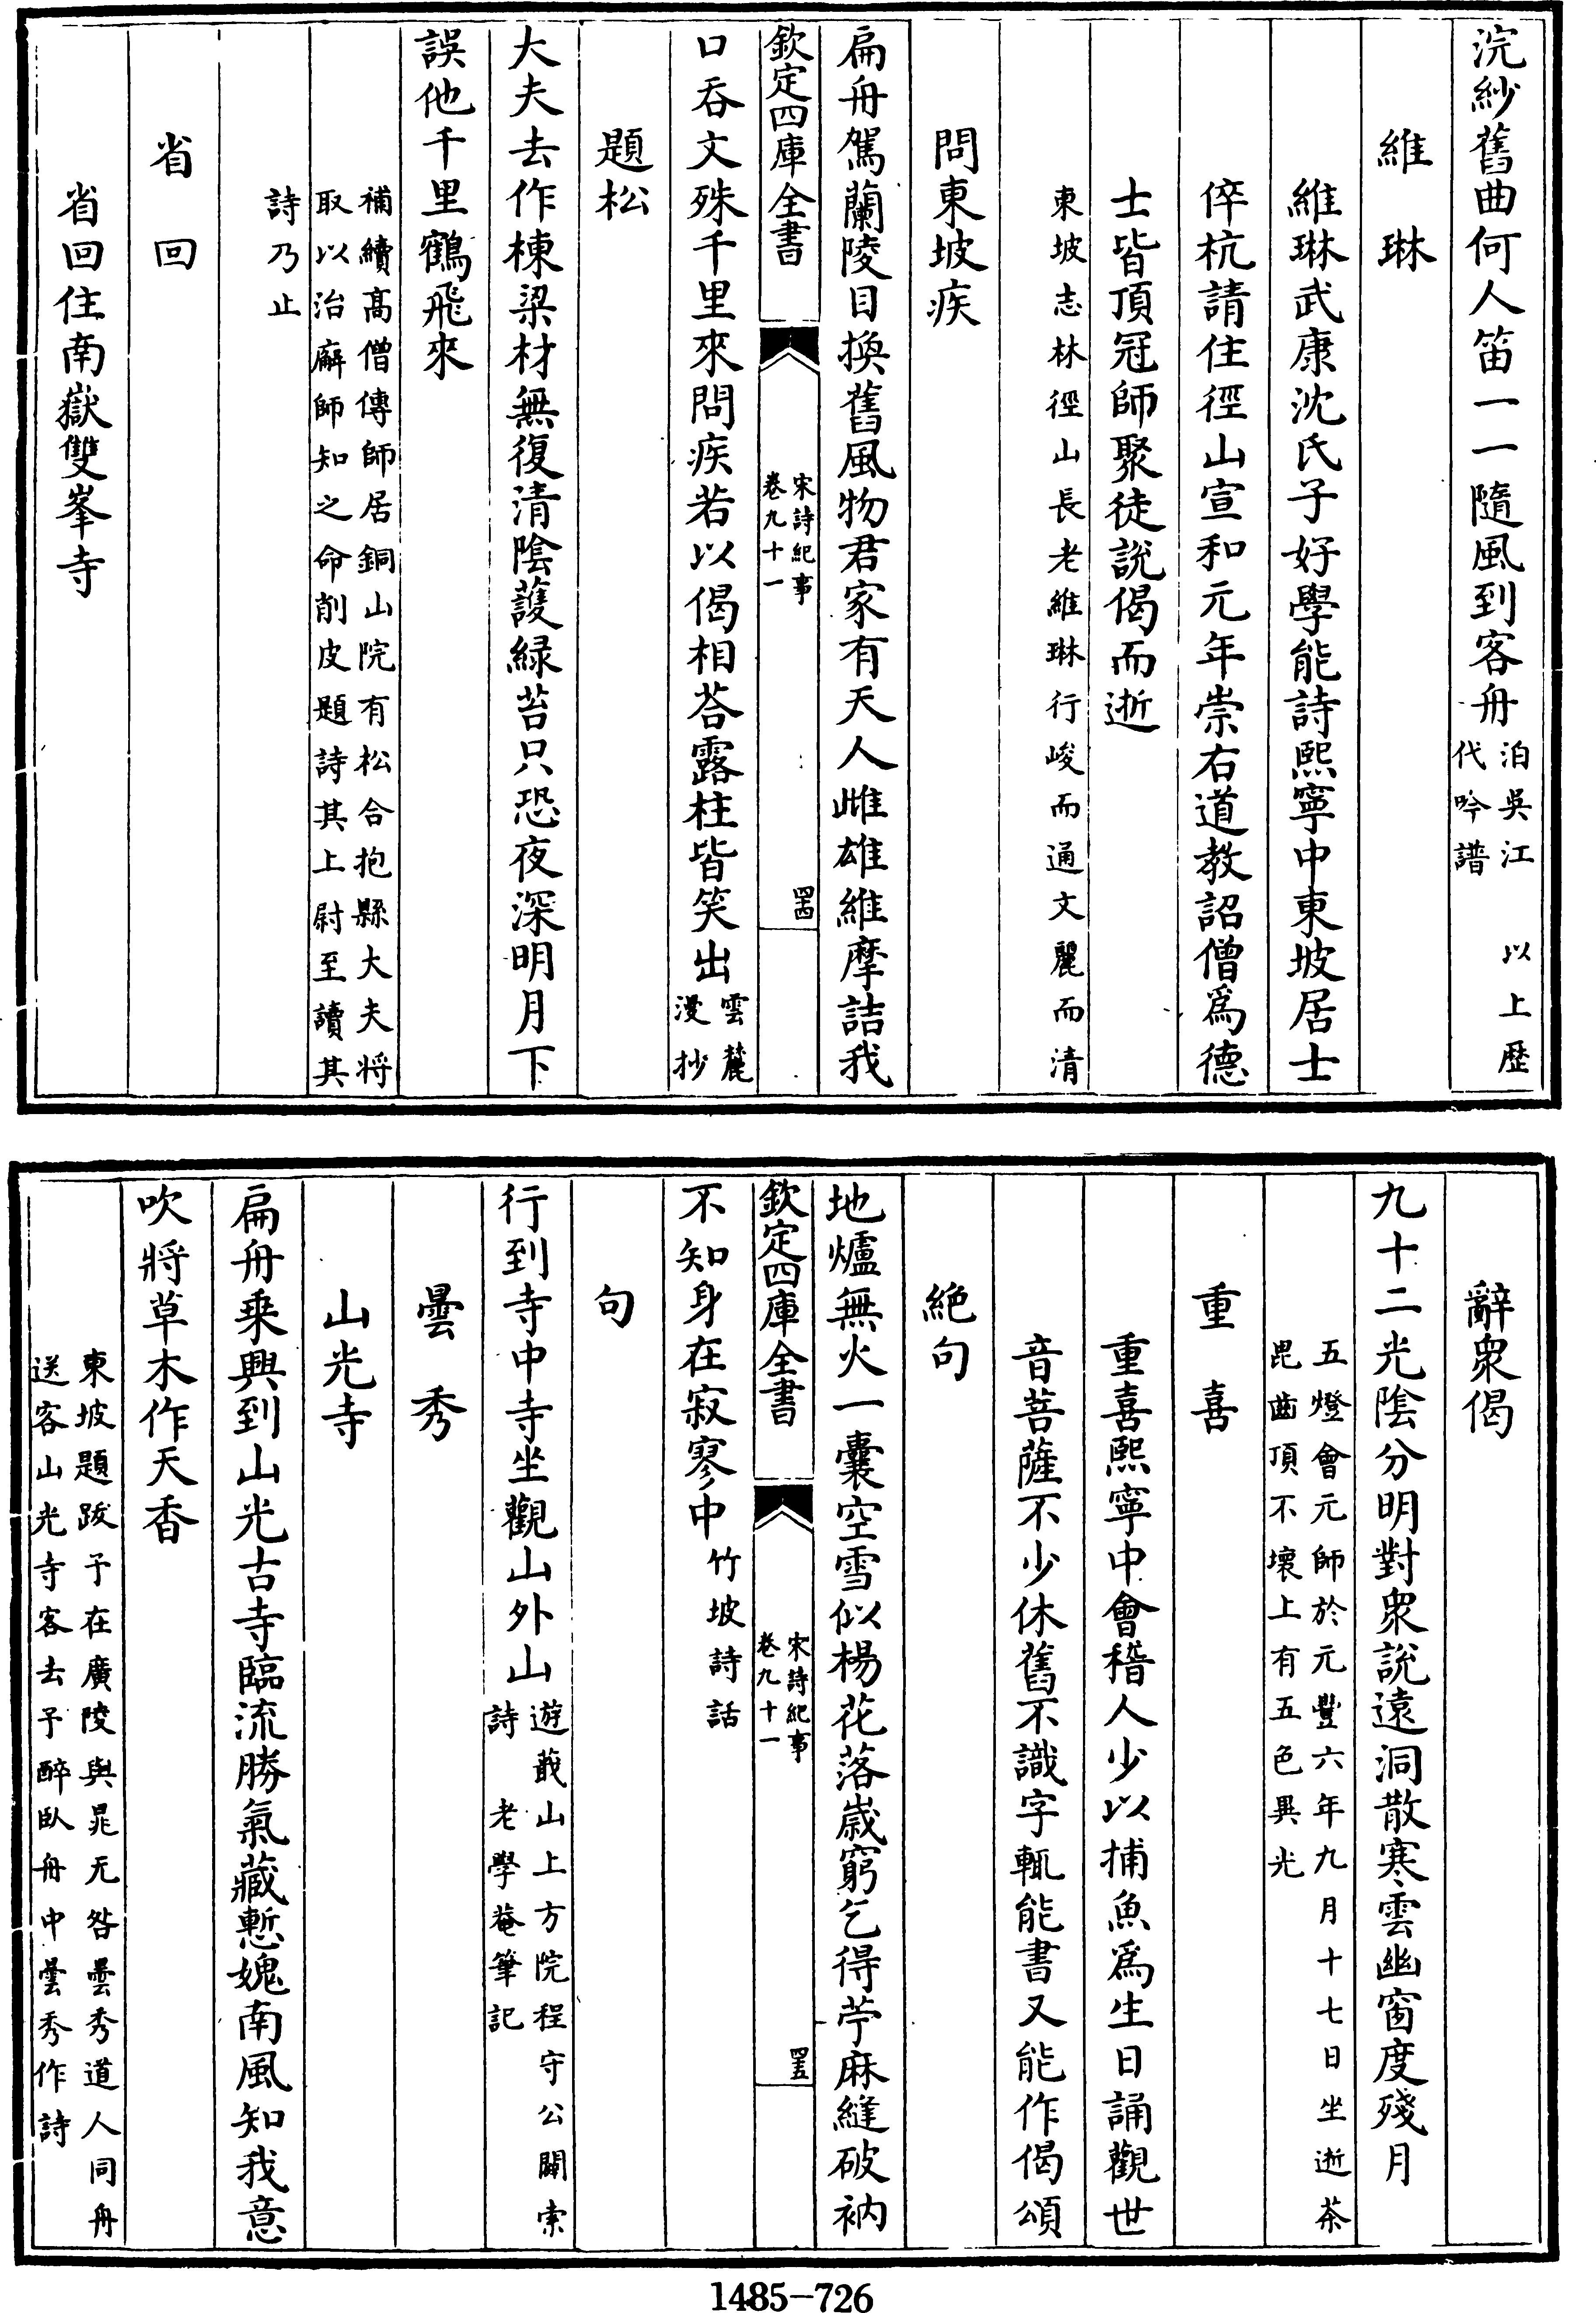 浣紗舊曲何人笛一一隨風到客舟泊吳江 以上歴
代吟譜
維琳
維琳武康沈氏子好學能詩熙寧中東坡居士
倅杭請住徑山宣和元年崇右道教詔僧爲德
士皆頂冠師聚徒說偈而逝
東坡志林徑山長老維琳行峻而通文麗而清
問東坡疾
扁舟駕蘭陵目換舊風物君家有天人雌雄維摩詰我
欽定四庫全書
宋詩紀事
卷九十一
罒
口吞文殊千里來問疾若以偈相荅露柱皆笑出雲麓
漫抄
題松
大夫去作棟梁材無復清陰護緑苔只恐夜深明月下
誤他千里鶴飛來
補續髙僧傳師居銅山院有松合抱縣大夫將
取以治廨師知之命削皮題詩其上尉至讀其
詩乃止
省回
省回住南嶽雙峯寺
辭衆偈
九十二光陰分明對衆說遠洞散寒雲幽窗度殘月
五燈會元師於元豐六年九月十七日坐逝茶
毘齒頂不壞上有五色異光
重喜
重喜熙寧中會稽人少以捕魚爲生日誦觀世
音菩薩不少休舊不識字輒能書又能作偈頌
絶句
地爐無火一囊空雪似楊花落歲窮乞得苧麻縫破衲
欽定四庫全書
宋詩紀事
卷九十一
不知身在寂寥中竹坡詩話
句
行到寺中寺坐觀山外山遊蕺山上方院程守公闢索
詩 老學菴筆記
曇秀
山光寺
扁舟乗興到山光古寺臨流勝氣藏慙媿南風知我意
吹將草木作天香
東坡題跋予在廣陵與晁无咎曇秀道人同舟
送客山光寺客去予醉臥舟中曇秀作詩
1485-726